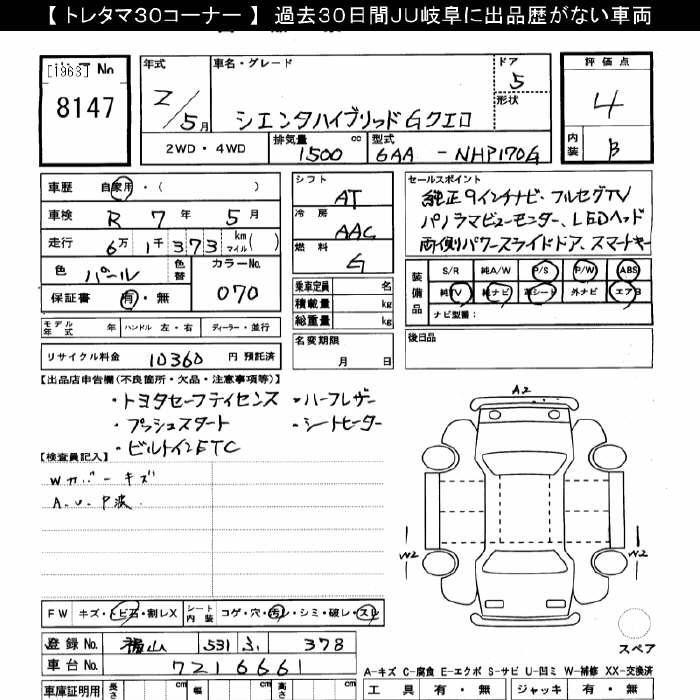 【 トレタマ30コーナー 】 過去30日間JU岐阜に出品歴がない車両
[1963] No
8147
年式
2/5月
車名・グレード
シエンタハイブリッドGクエロ
ドア
5
形状
評価点
4
内装
B
2WD・4WD
排気量
1500 cc
型式
6AA - NHP170G
車歴 自家用・( )
車検 R 7年 5月
走行 6万1千373 km マイル( )
色 パール
色替
カラーNo.
070
保証書 有・無
シフト
AT
冷房
AAC
燃料
G
乗車定員 名
積載量 kg
総重量 kg
名変期限
月 日
セールスポイント
純正9インチナビ・フルセグTV
パノラマビューモニター、LEDヘッド
両側パワースライドドア、スマートキー
装備品
S/R 純A/W P/S P/W ABS
純TV 純ナビ 革シート 外ナビ エアB
ナビ型番：
後日品
モデル年式 年 ハンドル 左・右 ディーラー・並行
リサイクル料金 10360 円 預託済
【出品店申告欄(不良箇所・欠品・注意事項等)】
・トヨタセーフティセンス ・ハーフレザー
・プッシュスタート ・シートヒーター
・ビルトインETC
【検査員記入】
Wカバーキズ
A.U.P波
A2
W2
W2
スペア
FW キズ・トビ石・割レX シート内装 コゲ・穴・汚レ・シミ・破レ・スレ
登録No. 福山 531 ふ 378
車台No. 7216661
A-キズ C-腐食 E-エクボ S-サビ U-凹ミ W-補修 XX-交換済
車庫証明用 長さ cm 幅 cm 高さ cm
工具 有・無 ジャッキ 有・無